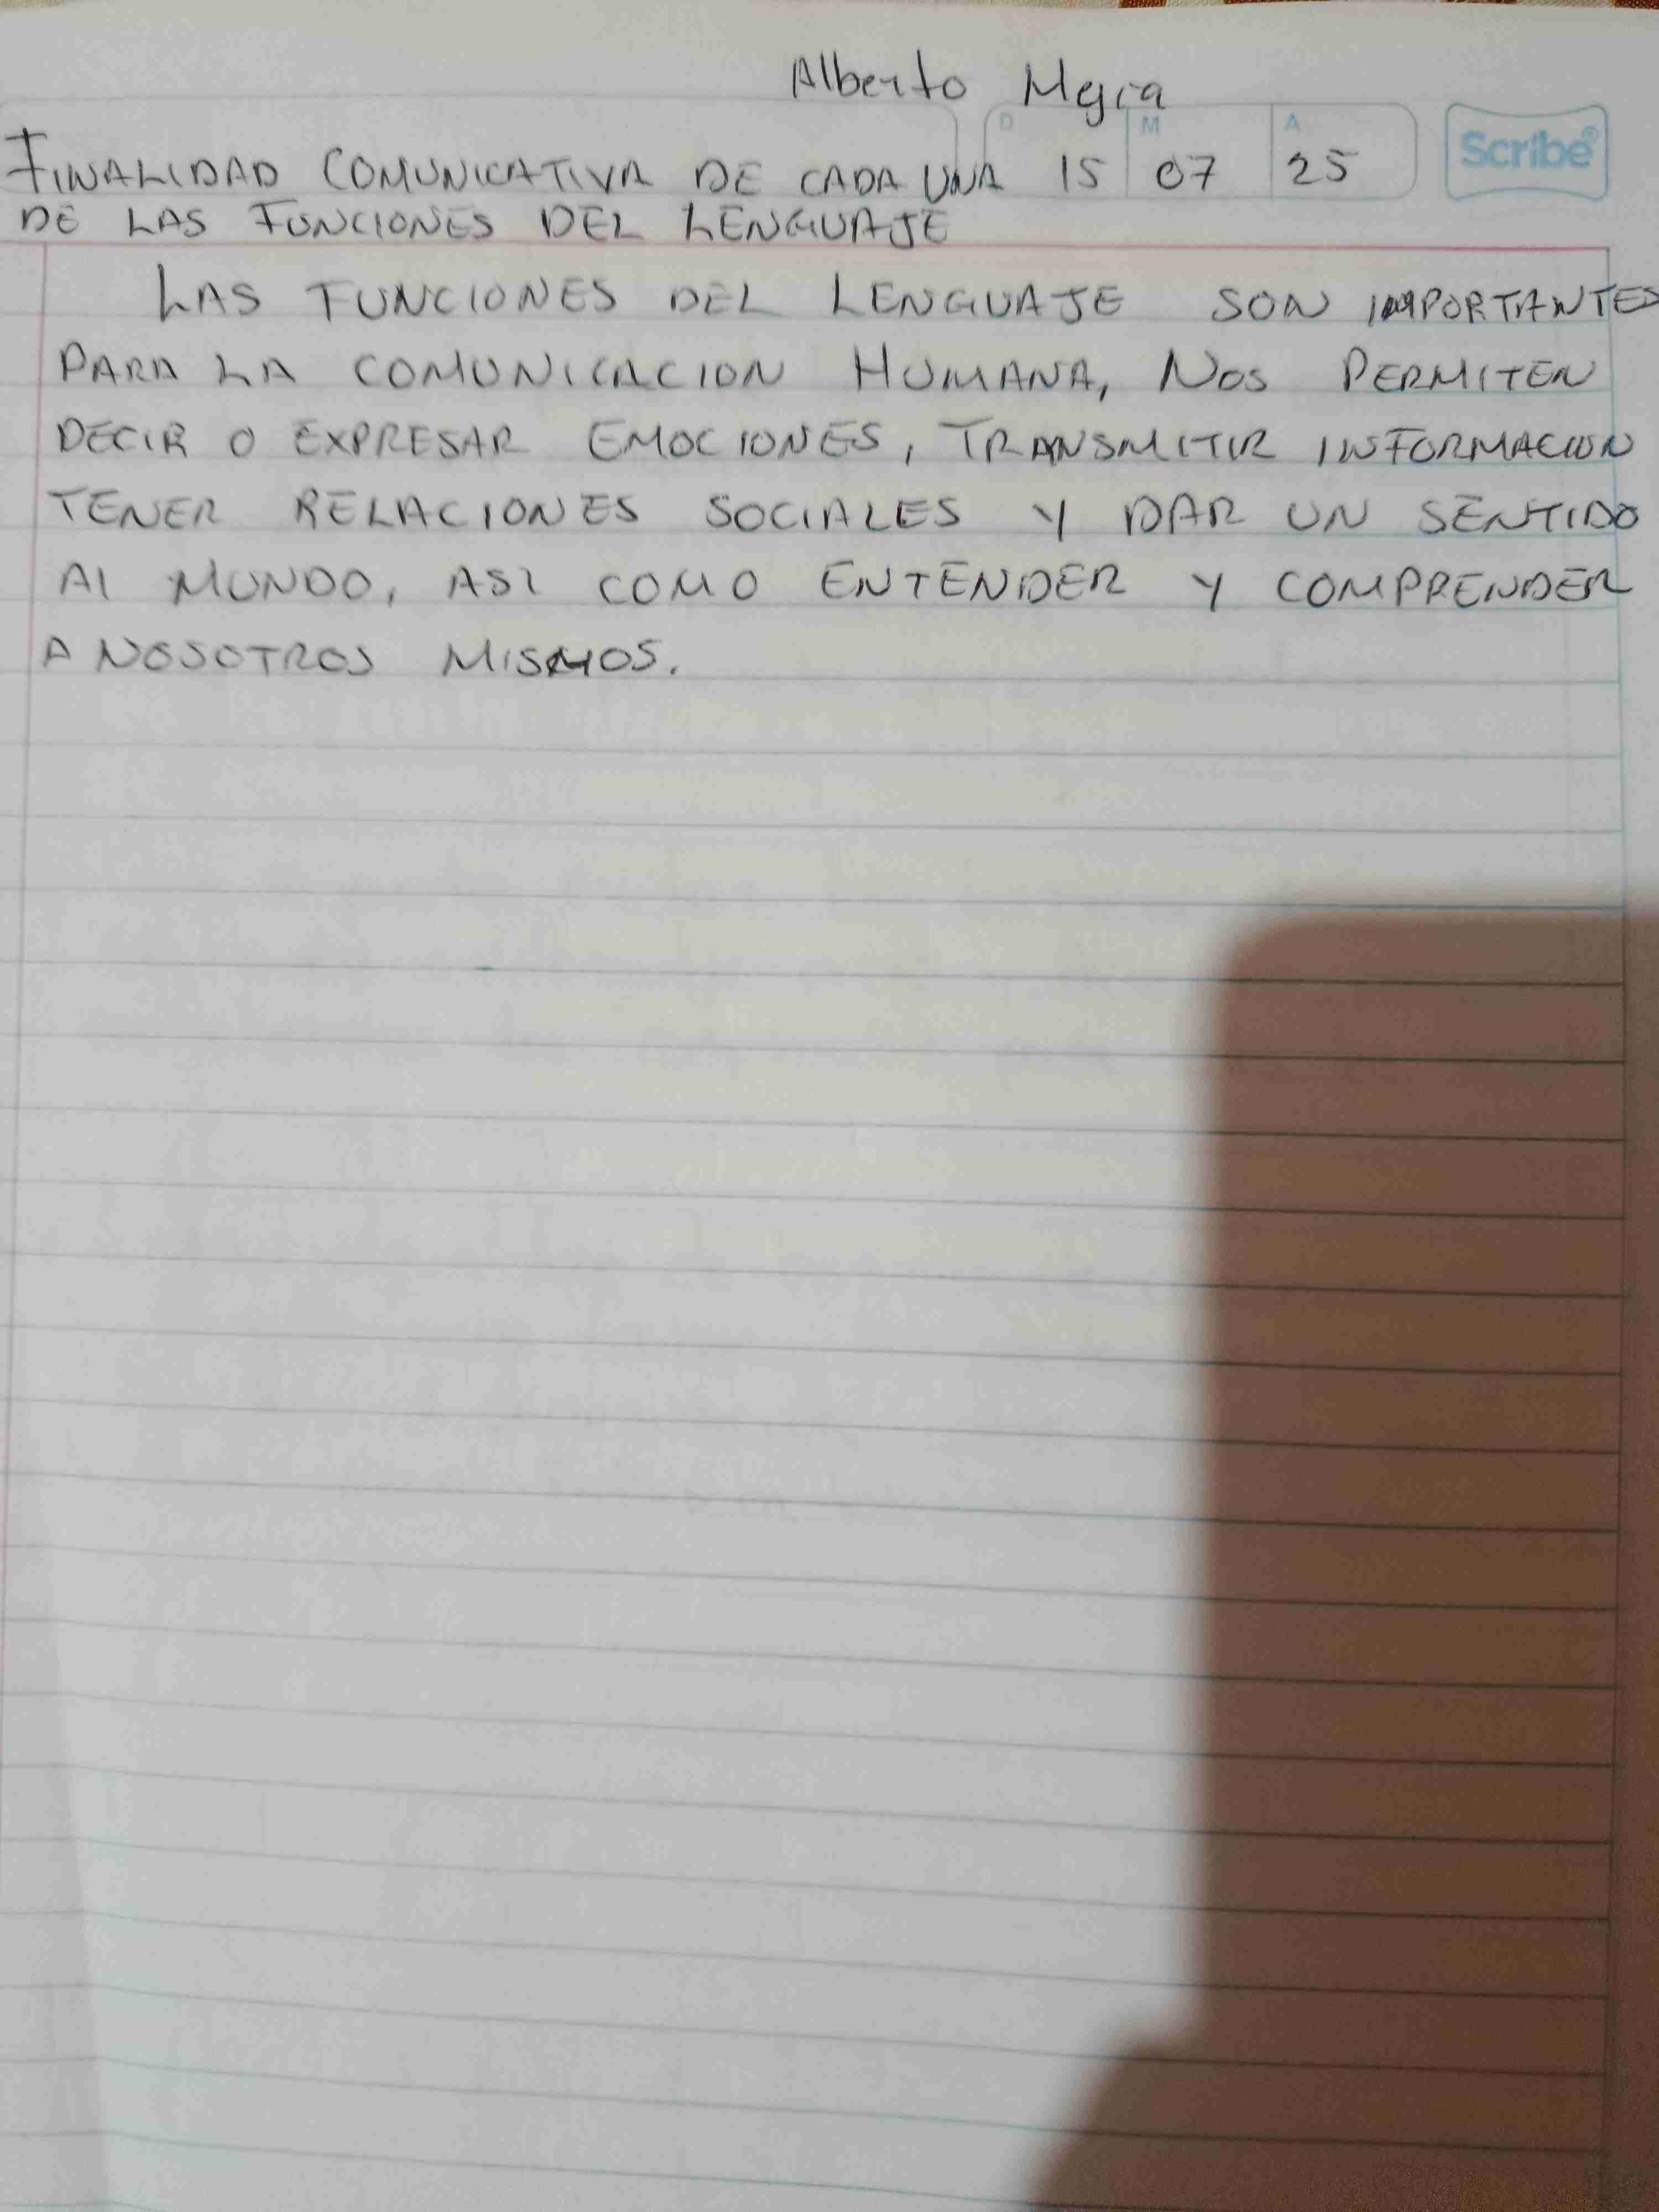 Alberto Mejia
D M A
Scribe®
FINALIDAD COMUNICATIVA DE CADA UNA 15 07 25
DE LAS FUNCIONES DEL LENGUAJE
LAS FUNCIONES DEL LENGUAJE SON IMPORTANTES
PARA LA COMUNICACION HUMANA, NOS PERMITEN
DECIR O EXPRESAR EMOCIONES, TRANSMITIR INFORMACION
TENER RELACIONES SOCIALES Y DAR UN SENTIDO
Al MUNDO, ASI COMO ENTENDER Y COMPRENDER
A NOSOTROS MISMOS.